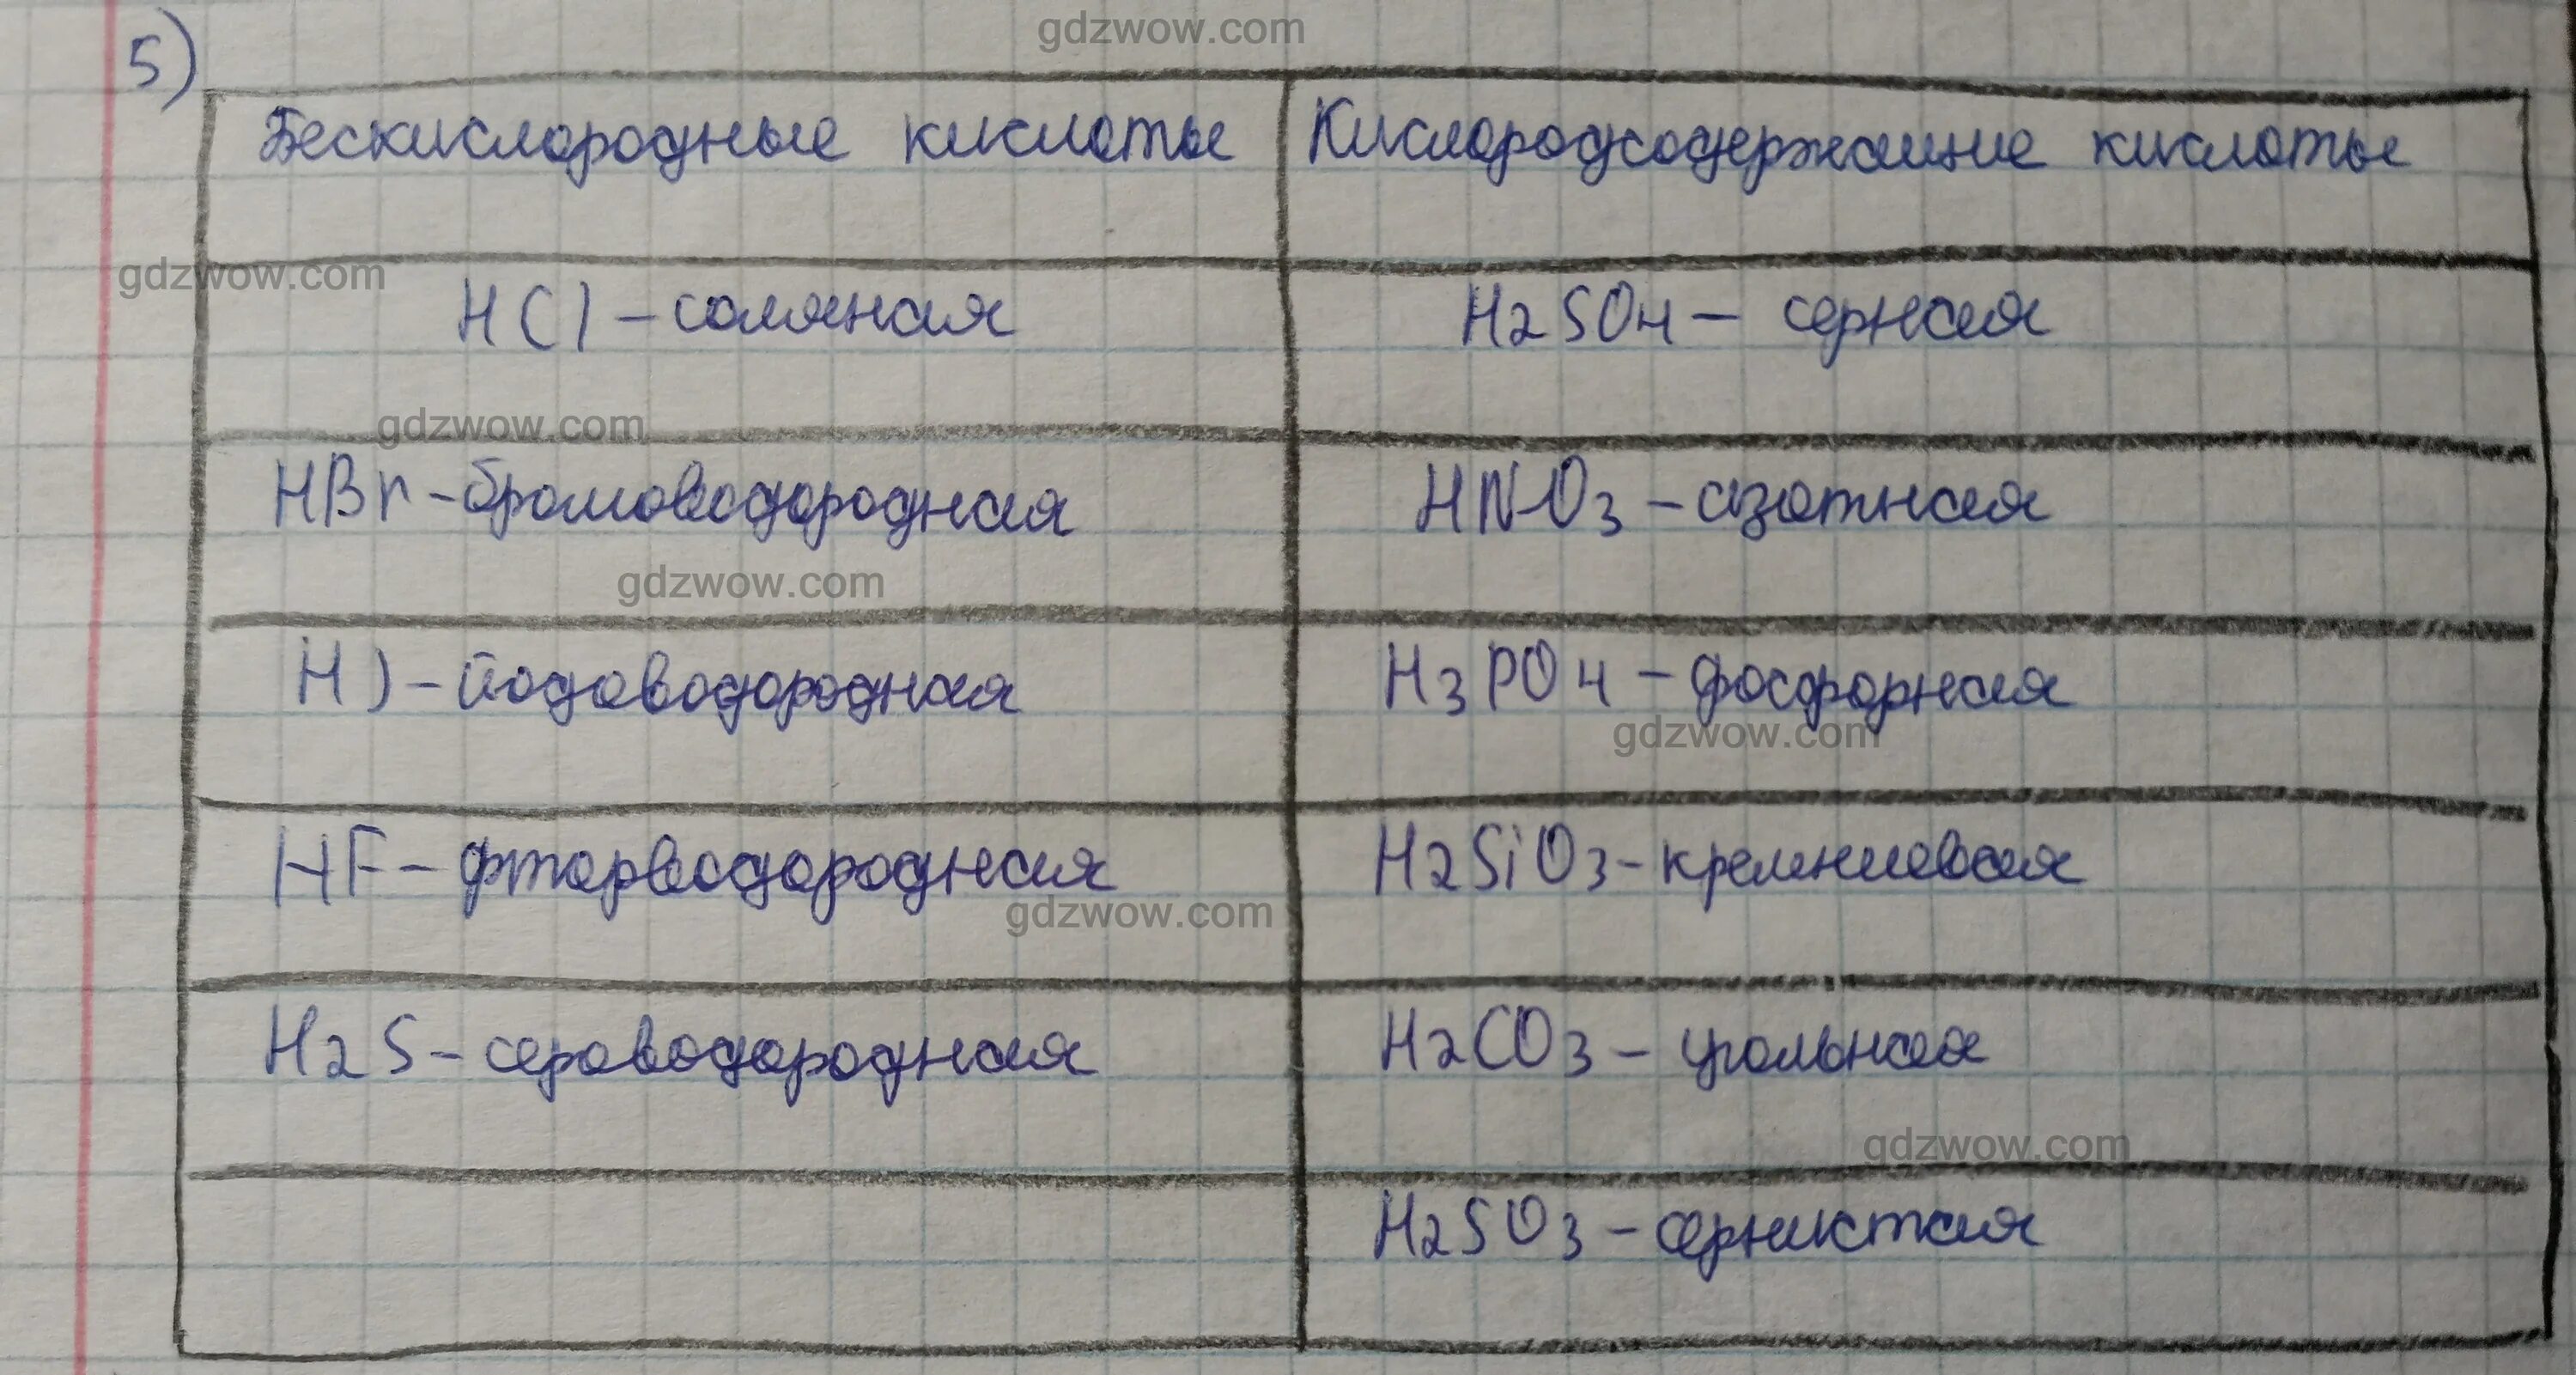 gdzwow.com
5)
Бескислородные кислоты
Кислородсодержащие кислоты
gdzwow.com
HCl – соляная
H2SO4 – серная
gdzwow.com
HBr – бромоводородная
HNO3 – азотная
gdzwow.com
HJ – йодоводородная
H3PO4 – фосфорная
gdzwow.com
HF – фтороводородная
H2SiO3 – кремниевая
gdzwow.com
H2S – сероводородная
H2CO3 – угольная
gdzwow.com
H2SO3 – сернистая